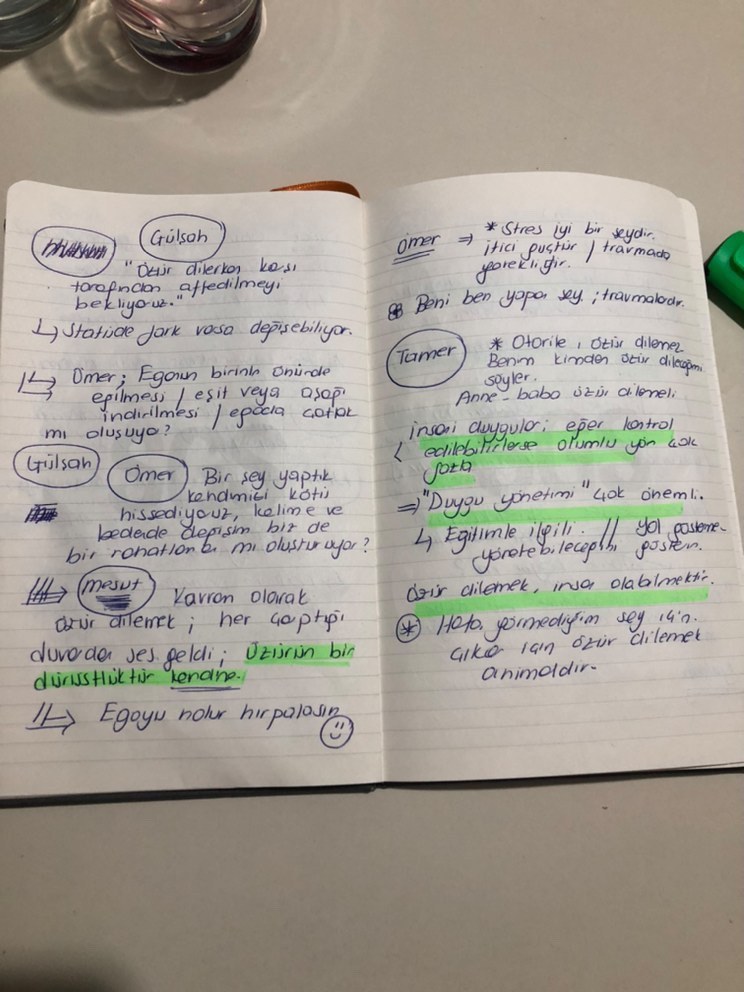 Gülşah
"Özür dilerken karşı
tarafından affedilmeyi
bekliyoruz."
↳ Statüde fark varsa değişebiliyor.
Ömer; Egonun birinin önünde
epilmesi / eşit veya aşağı
indirilmesi / egoda çatlak
mı oluşuyo?
Gülşah Ömer Bir şey yaptık
kendimizi kötü
hissediyoruz, kelime ve
bedende değişim biz de
bir rahatlama mı oluşturuyor?
Mesut Kavram olarak
özür dilemek; her çarptığı
duvardan ses geldi; Üzürün bir
dürüstlüktür kendine.
Egoyu nolur hırpalasın
Ömer ⇒ * Stres iyi bir şeydir.
itici güçtür / travmada
gereklidir.
Beni ben yapan şey; travmalardır.
Tamer * Otorite, özür dilemez
Benim kimden özür dileceğimi
söyler.
Anne-baba özür dilemeli
insani duygular; eğer kontrol
edilebilirlerse olumlu yön çok
fazla
⇒ "Duygu yönetimi" çok önemli.
↳ Eğitimle ilgili. // yol gösterme
yönetebileceğini gösterir.
özür dilemek, insan olabilmektir.
* Hata görmediğim şey için.
çıkar için özür dilemek
anımaldır.